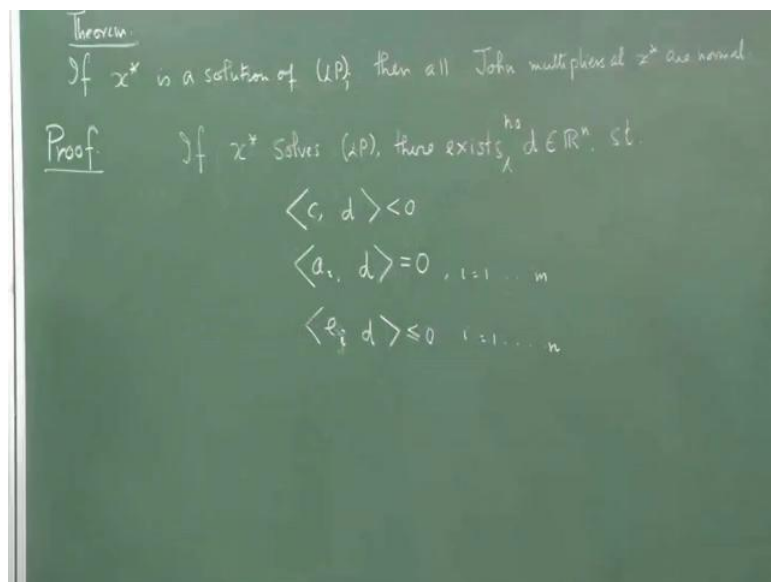 Theorem.
If x* is a solution of (LP), then all John multipliers at x* are normal.
Proof. If x* solves (LP), there exists no d ∈ ℝⁿ, st.
⟨c, d⟩ < 0
⟨aᵢ, d⟩ = 0, i = 1 ... m
⟨eᵢ, d⟩ ≤ 0 i = 1 .... n